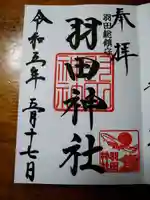 奉拝
羽田総鎮守
羽田神社
令和五年 五月十七日